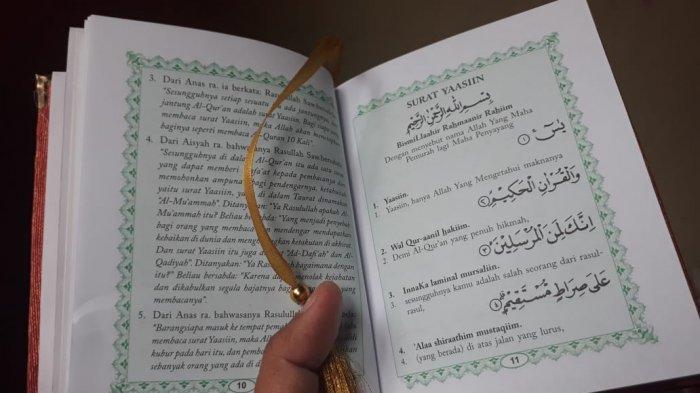 3. Dari Anas ra. ia berkata; Rasulullah Saw bersabda:
"Sesungguhnya setiap sesuatu ada jantungnya,
jantung Al-Qur'an adalah surat Yaasiin.
membaca surat Yaasiin, maka Allah akan
baginya seperti membaca Qur'an 10 Kali".
4. Dari Aisyah ra. bahwasanya Rasulullah Saw bersabda:
"Sesungguhnya di dalam Al-Qur'an itu ada satu surat
yang dapat memberi kepada pembacanya dan
memohonkan ampunan bagi pendengarnya, ketahuilah
yaitu surat Yaasiin, yang di dalam
"Al-Mu'ammah". Ditanyakan: "Ya Rasulullah apakah Al-
Mu'ammah itu? Beliau bersabda: "Yang menjadi penyebab
bagi orang yang membacanya dan mendengar mendapatkan
kebaikan di dunia dan menghilangkan ketakutan di akhirat.
Dan surat Yaasiin itu juga "Ad-Dafi'ah" dan Al-
Qadiyah". Ditanyakan: "Ya Rasulullah bagaimana dengan
itu?" Beliau bersabda: "Karena menolak kejahatan
dan dikabulkan segala hajatnya bagi orang yang
membacanya".
5. Dari Anas ra. bahwasanya Rasulullah bersabda:
"Barangsiapa masuk ke tempat
membaca surat Yaasiin, maka Allah
kubur pada hari itu, dan
sebanyak orang yang ada di
10
SURAT YAASIIN
بِسْمِ اللهِ الرَّحْمٰنِ الرَّحِيْمِ
Bismillaahir Rahmaanir Rahiim
Dengan menyebut nama Allah Yang Maha
Pemurah lagi Maha Penyayang
يٰسۤ ۝١
1. Yaasiin.
1. Yaasiin, hanya Allah Yang Mengetahui maknanya
وَالْقُرْاٰنِ الْحَكِيْمِ ۝٢
2. Wal Qur-aanil hakiim.
2. Demi Al-Qur'an yang penuh hikmah,
اِنَّكَ لَمِنَ الْمُرْسَلِيْنَ ۝٣
3. InnaKa laminal mursaliin.
3. sesungguhnya kamu adalah salah seorang dari rasul-
rasul,
عَلٰى صِرَاطٍ مُّسْتَقِيْمٍ ۝٤
4. 'Alaa shiraathim mustaqiim.
4. (yang berada) di atas jalan yang lurus,
11